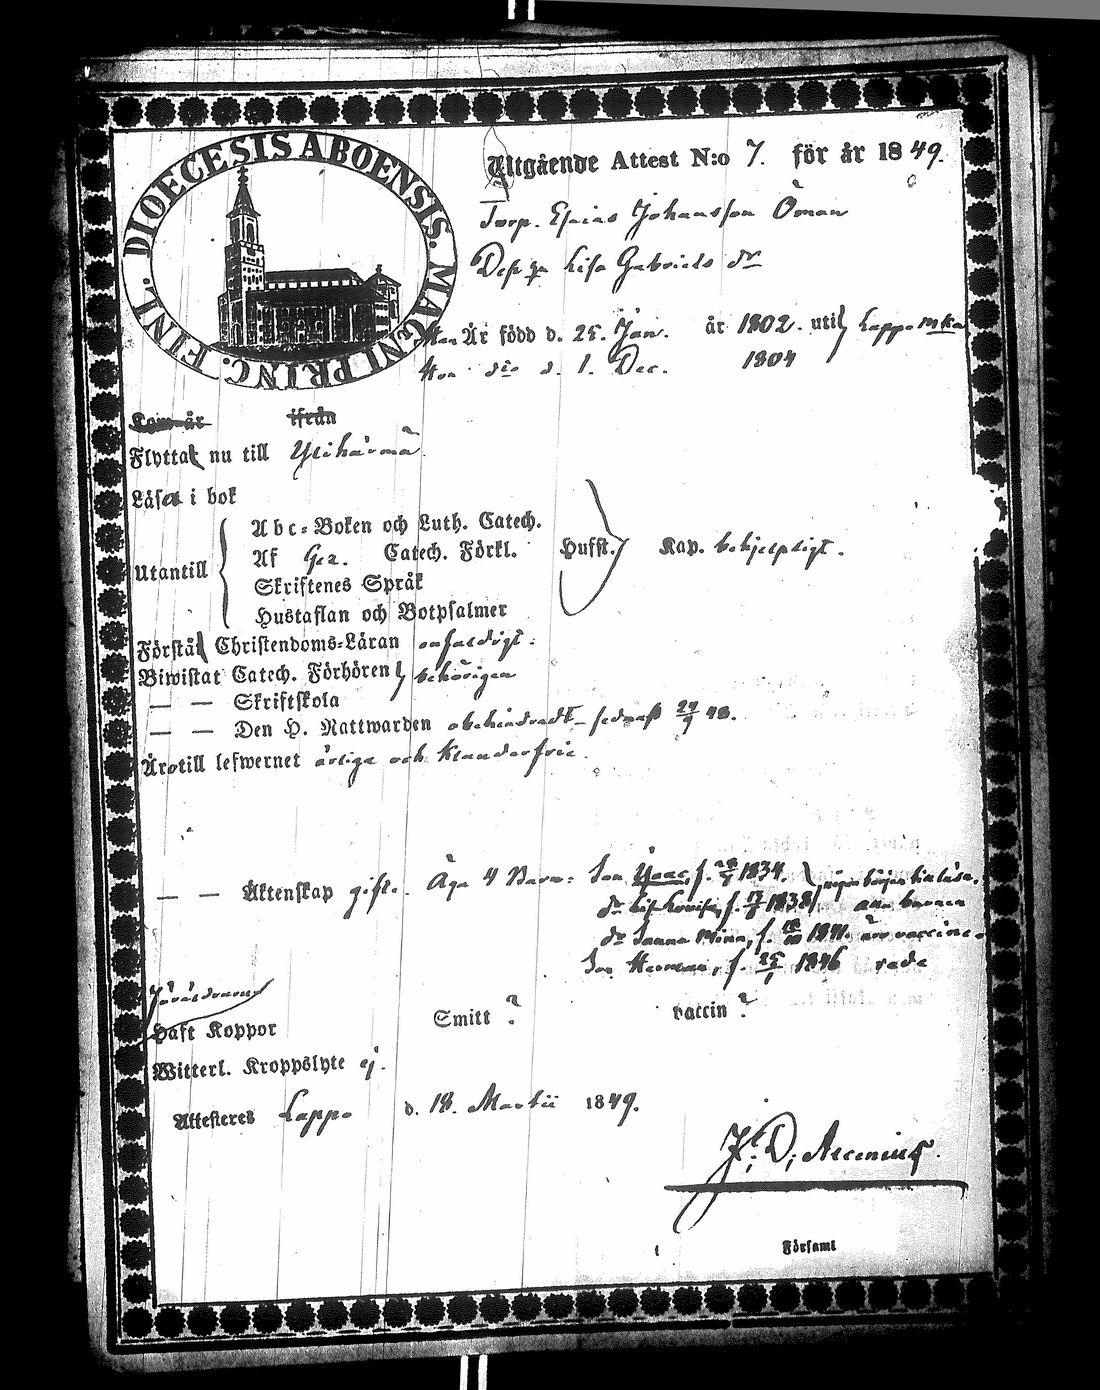 DIOECESIS ABOENSIS. MAGNI PRINC. FINL.
Utgående Attest N:o 7. för år 1849.
Torp. Esaias Johansson Öman
Dess hu Lisa Gabriels dr
Han Är född d. 25. Jan. år 1802. uti Lappo
Hon d:o d. 1. Dec. 1804
Kom år ifrån
Flyttat nu till Ylihärmä.
Läser i bok
Abc-Boken och Luth. Catech.
Af Catech. Förkl.
Skriftenes Språk
Hustaflan och Botpsalmer
Utantill
Hufst. Kap. behjelpligt.
Förstå Christendoms-Läran enfaldigt.
Biwistat Catech. Förhören behörigen
— — Skriftskola
— — Den H. Nattwarden obehindradt sednast 24/9 48.
Äro till lefwernet ärliga och klanderfrie.
— — Äktenskap gifte. Äga 4 Barn: Son Isaac f. 1834.
dr Lis Lovisa, f. 1838
dr Sanna Mina, f. 1841. äro vaccine-
Son Herman, f. 25/1 1846 rade
alla barnen
Haft Koppor Smitt? vaccin?
Witterl. Kroppslyte ej.
Attesteres Lappo d. 18. Martii 1849.
J. D. Alcenius.
Församl